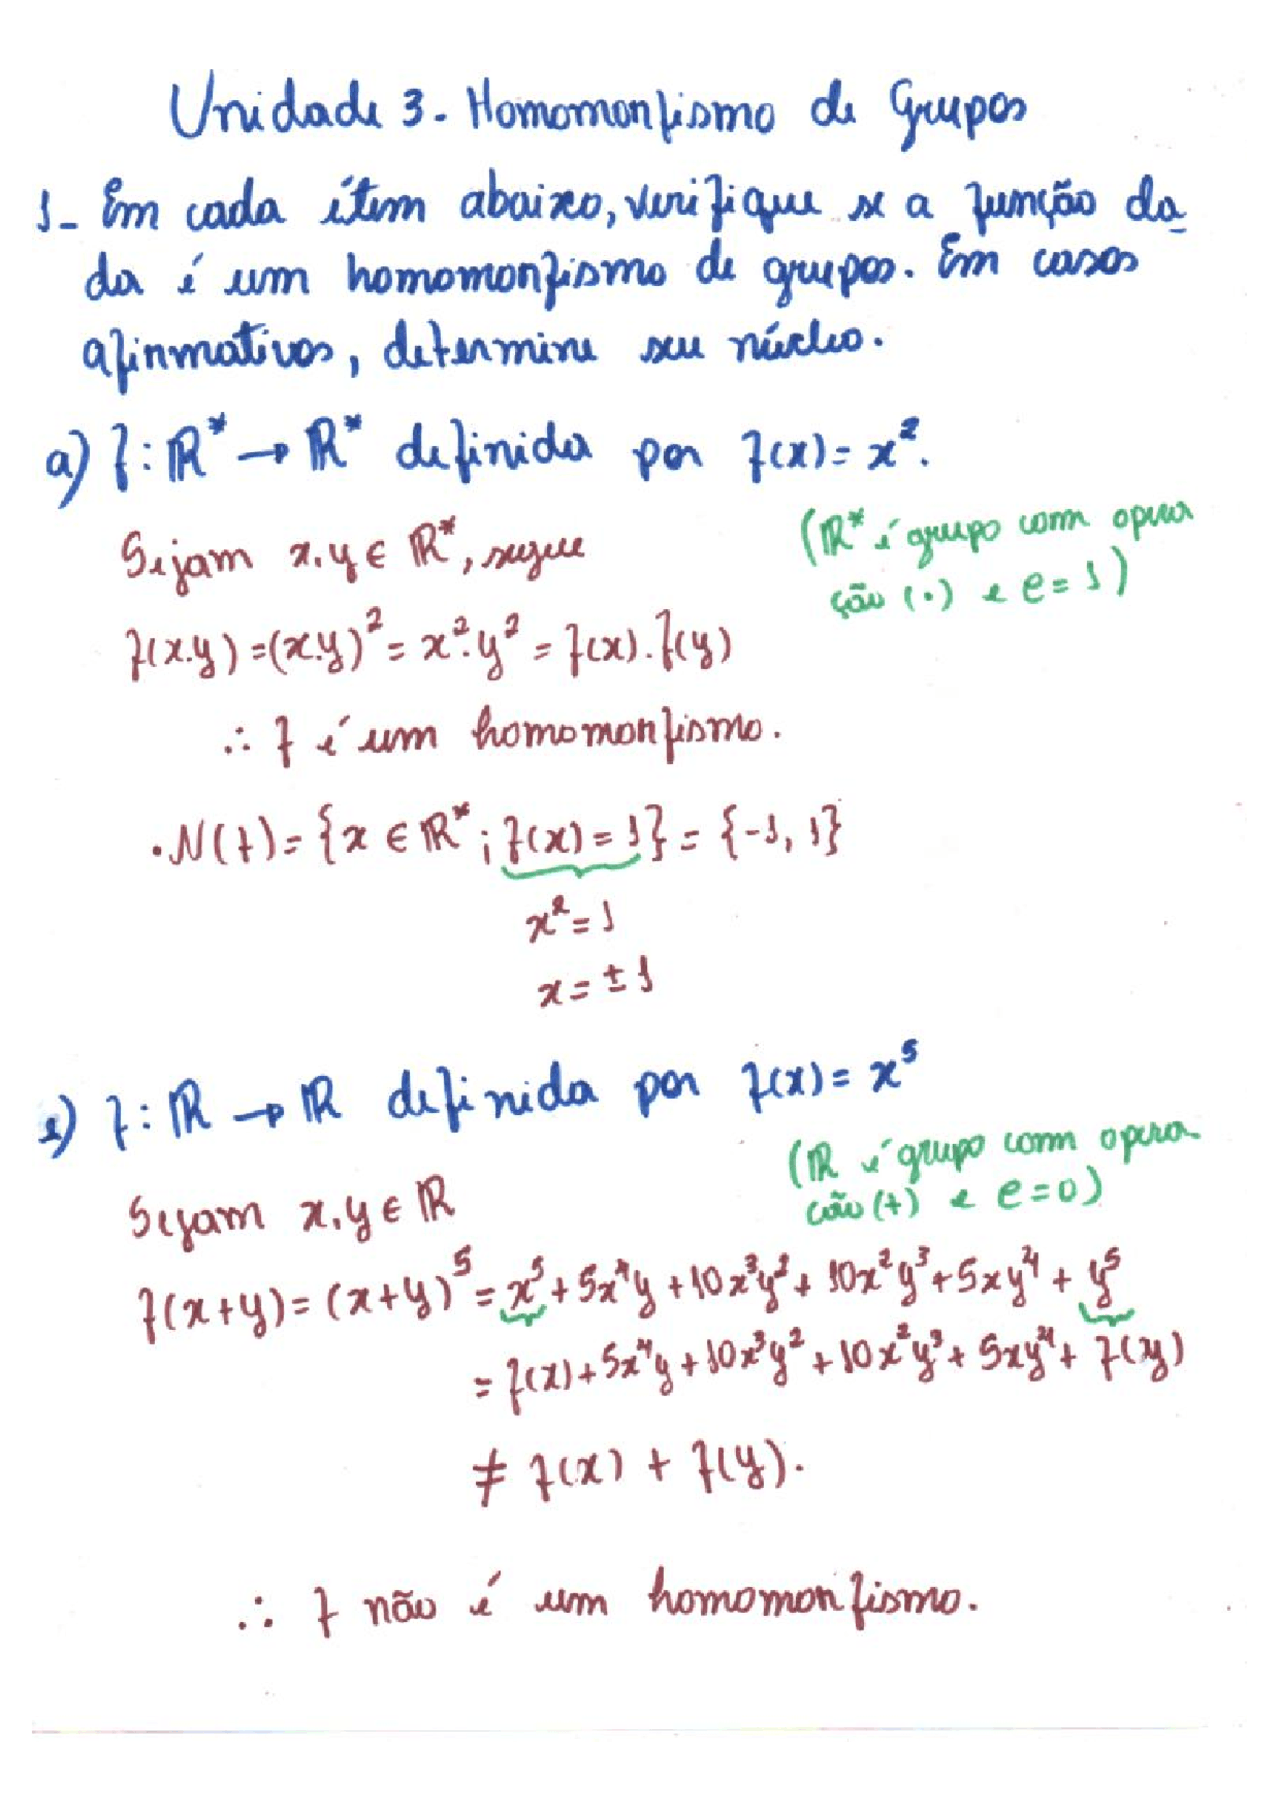 Unidade 3. Homomorfismo de Grupos
1- Em cada ítem abaixo, verifique se a função da
da é um homomorfismo de grupos. Em casos
afirmativos, determine seu núcleo.
a) f: ℝ* → ℝ* definida por f(x) = x².
Sejam x, y ∈ ℝ*, segue
(ℝ* é grupo com opera
ção (·) e e = 1)
f(x.y) = (x.y)² = x².y² = f(x).f(y)
∴ f é um homomorfismo.
• N(f) = {x ∈ ℝ*; f(x) = 1} = {-1, 1}
x² = 1
x = ±1
e) f: ℝ → ℝ definida por f(x) = x⁵
(ℝ é grupo com opera
ção (+) e e = 0)
Sejam x, y ∈ ℝ
f(x+y) = (x+y)⁵ = x⁵ + 5x⁴y + 10x³y² + 10x²y³ + 5xy⁴ + y⁵
= f(x) + 5x⁴y + 10x³y² + 10x²y³ + 5xy⁴ + f(y)
≠ f(x) + f(y).
∴ f não é um homomorfismo.